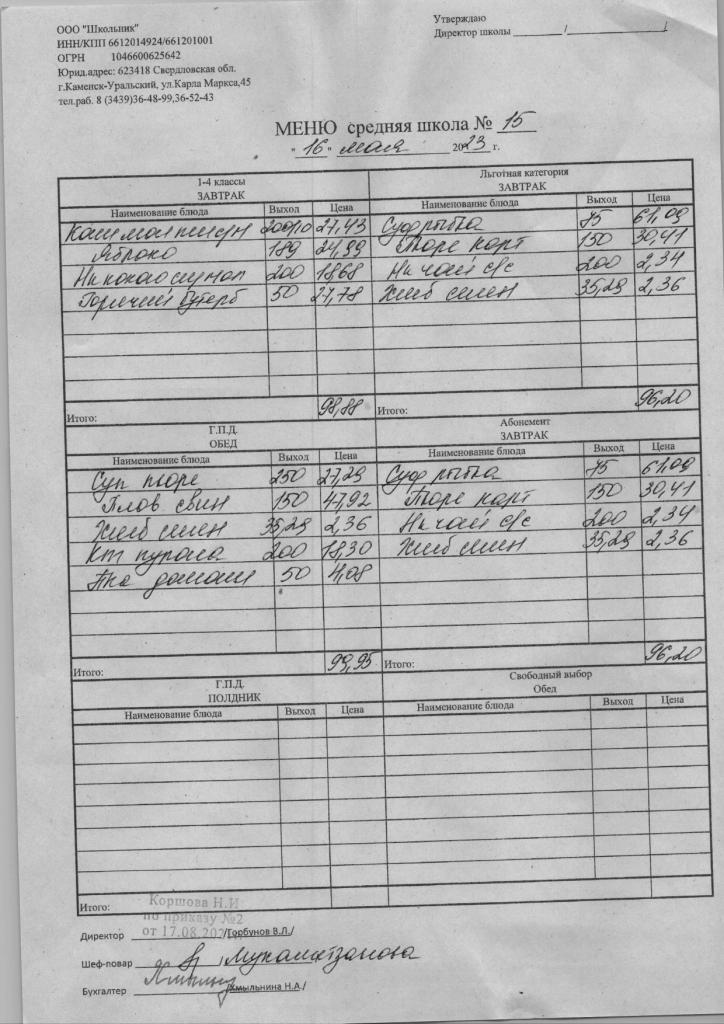 ООО "Школьник"
ИНН/КПП 6612014924/661201001
ОГРН 1046600625642
Юрид.адрес: 623418 Свердловская обл.
г.Каменск-Уральский, ул.Карла Маркса,45
тел.раб. 8 (3439)36-48-99,36-52-43
Утверждаю
Директор школы ________ /____________/
МЕНЮ средняя школа № 15
"16" мая 2023 г.
1-4 классы
ЗАВТРАК
Наименование блюда Выход Цена
Каш мол пшен 200/10 27,43
Яблоко 189 24,99
Нк какао с цмол 200 18,68
Горячий бутерб 50 27,78
Итого: 98,88
Льготная категория
ЗАВТРАК
Наименование блюда Выход Цена
Суф рыба 75 61,09
Пюре карт 150 30,41
Нк чай с/с 200 2,34
Хлеб пшен 35,29 2,36
Итого: 96,20
Г.П.Д.
ОБЕД
Наименование блюда Выход Цена
Суп пюре 250 27,29
Плов свин 150 47,92
Хлеб пшен 35,29 2,36
Кт 200 18,30
домаш 50 4,08
Итого: 99,95
Абонемент
ЗАВТРАК
Наименование блюда Выход Цена
Суф рыба 75 61,09
Пюре карт 150 30,41
Нк чай с/с 200 2,34
Хлеб пшен 35,29 2,36
Итого: 96,20
Г.П.Д.
ПОЛДНИК
Наименование блюда Выход Цена
Итого:
Свободный выбор
Обед
Наименование блюда Выход Цена
Коршова Н.И
по приказу №2
от 17.08.20
Директор /Горбунов В.Л./
Шеф-повар / Мухаметзанова
Бухгалтер /Хмыльнина Н.А./